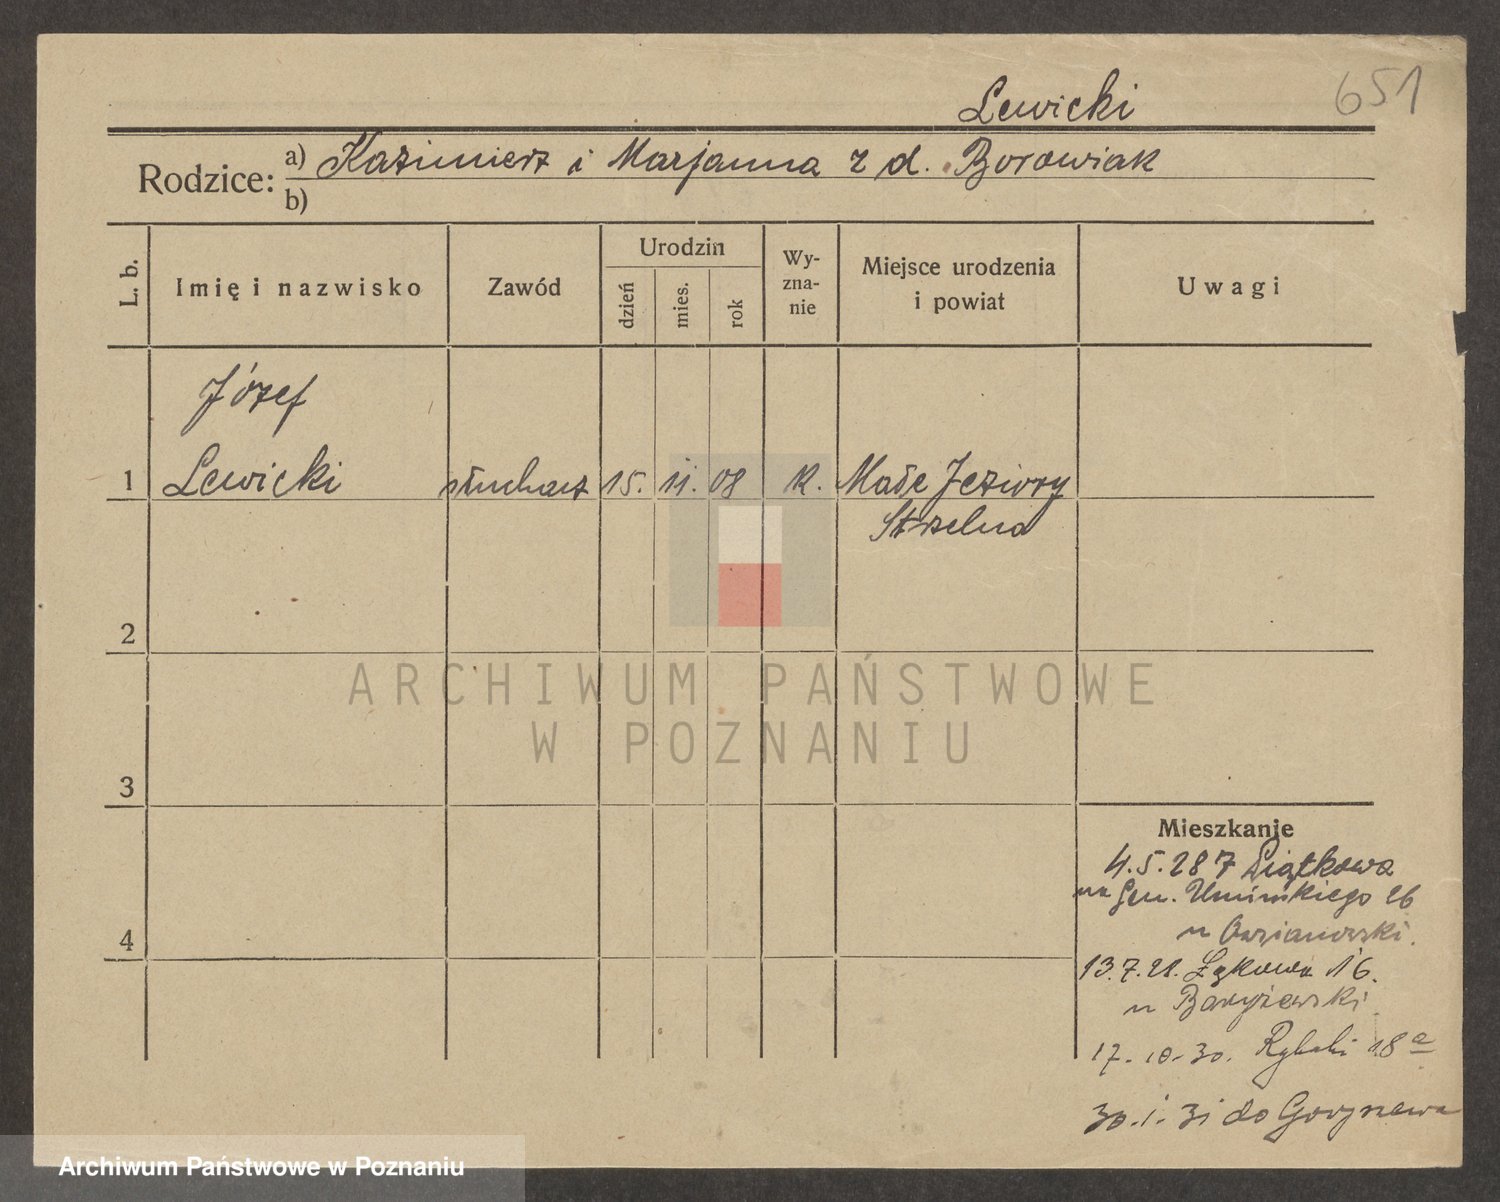 651
Lewicki
Rodzice: a) Kazimierz i Marjanna z d. Borowiak
b)
L. b.
Imię i nazwisko
Zawód
Urodzin
dzień
mies.
rok
Wy-
zna-
nie
Miejsce urodzenia
i powiat
Uwagi
Józef
1 Lewicki słuchacz 15. 11. 08 k. Małe Jeziory
Strzelno
2
3
4
ARCHIWUM PAŃSTWOWE
W POZNANIU
Mieszkanie
4.5.28 7
na Gen. Umińskiego 26
u
13.7.28. Łąkowa 16.
u
17.10.30. Rybaki 18a
30.1.31 do Goryszewa
Archiwum Państwowe w Poznaniu